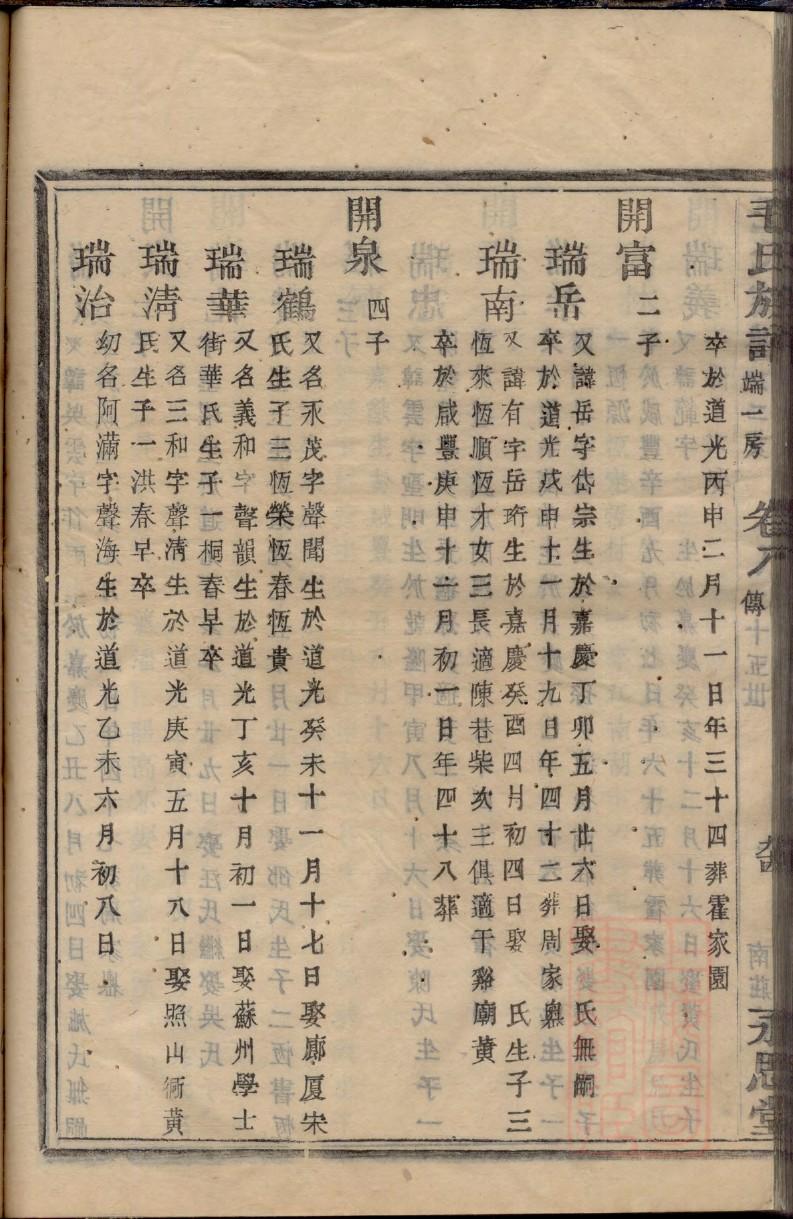 毛氏族譜 端一房 卷八 傳十五世 南莊 永思堂
卒於道光丙申二月十一日年三十四葬霍家園
開富 二子
瑞岳 又諱岳字岱宗生於嘉慶丁卯五月廿六日娶 氏無嗣
卒於道光戊申十一月十九日年四十二葬周家㙠
瑞南 又諱有字岳珩生於嘉慶癸酉四月初四日娶 氏生子三
恆來恆順恆才女三長適陳巷柴次三俱適于谿廟黃
卒於咸豐庚申十一月初一日年四十八葬
開泉 四子
瑞鶴 又名永茂字聲聞生於道光癸未十一月十七日娶廊厦宋
氏生子三恆榮恆春恆貴
瑞華 又名義和字聲韻生於道光丁亥十月初一日娶蘇州學士
街華氏生子一桐春早卒
瑞清 又名三和字聲清生於道光庚寅五月十八日娶照山衕黃
氏生子一洪春早卒
瑞治 幼名阿滿字聲海生於道光乙未六月初八日